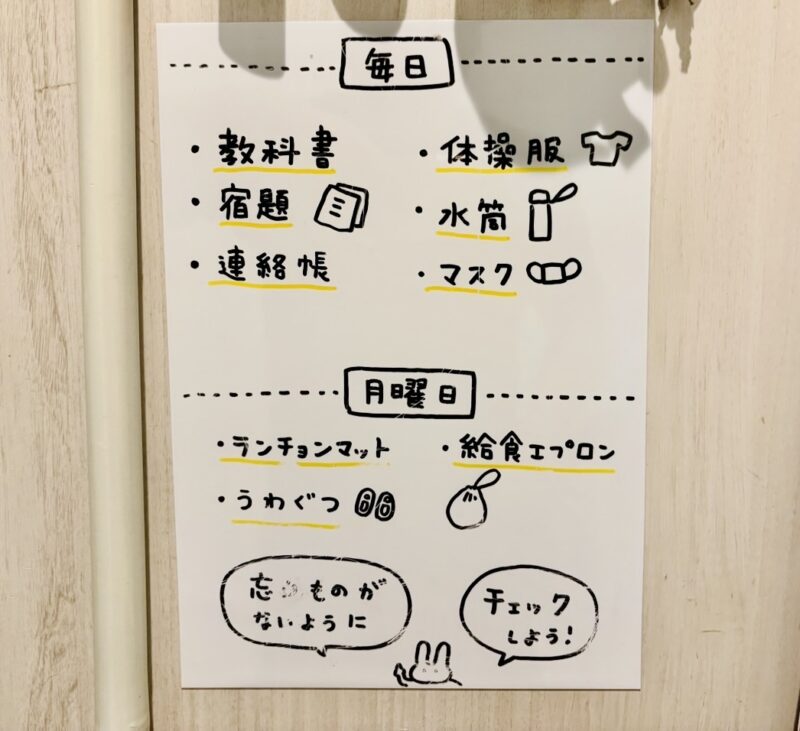 毎日
・教科書
・宿題
・連絡帳
・体操服
・水筒
・マスク
月曜日
・ランチョンマット
・うわぐつ
・給食エプロン
忘 ものが
ないように
チェック
しよう!